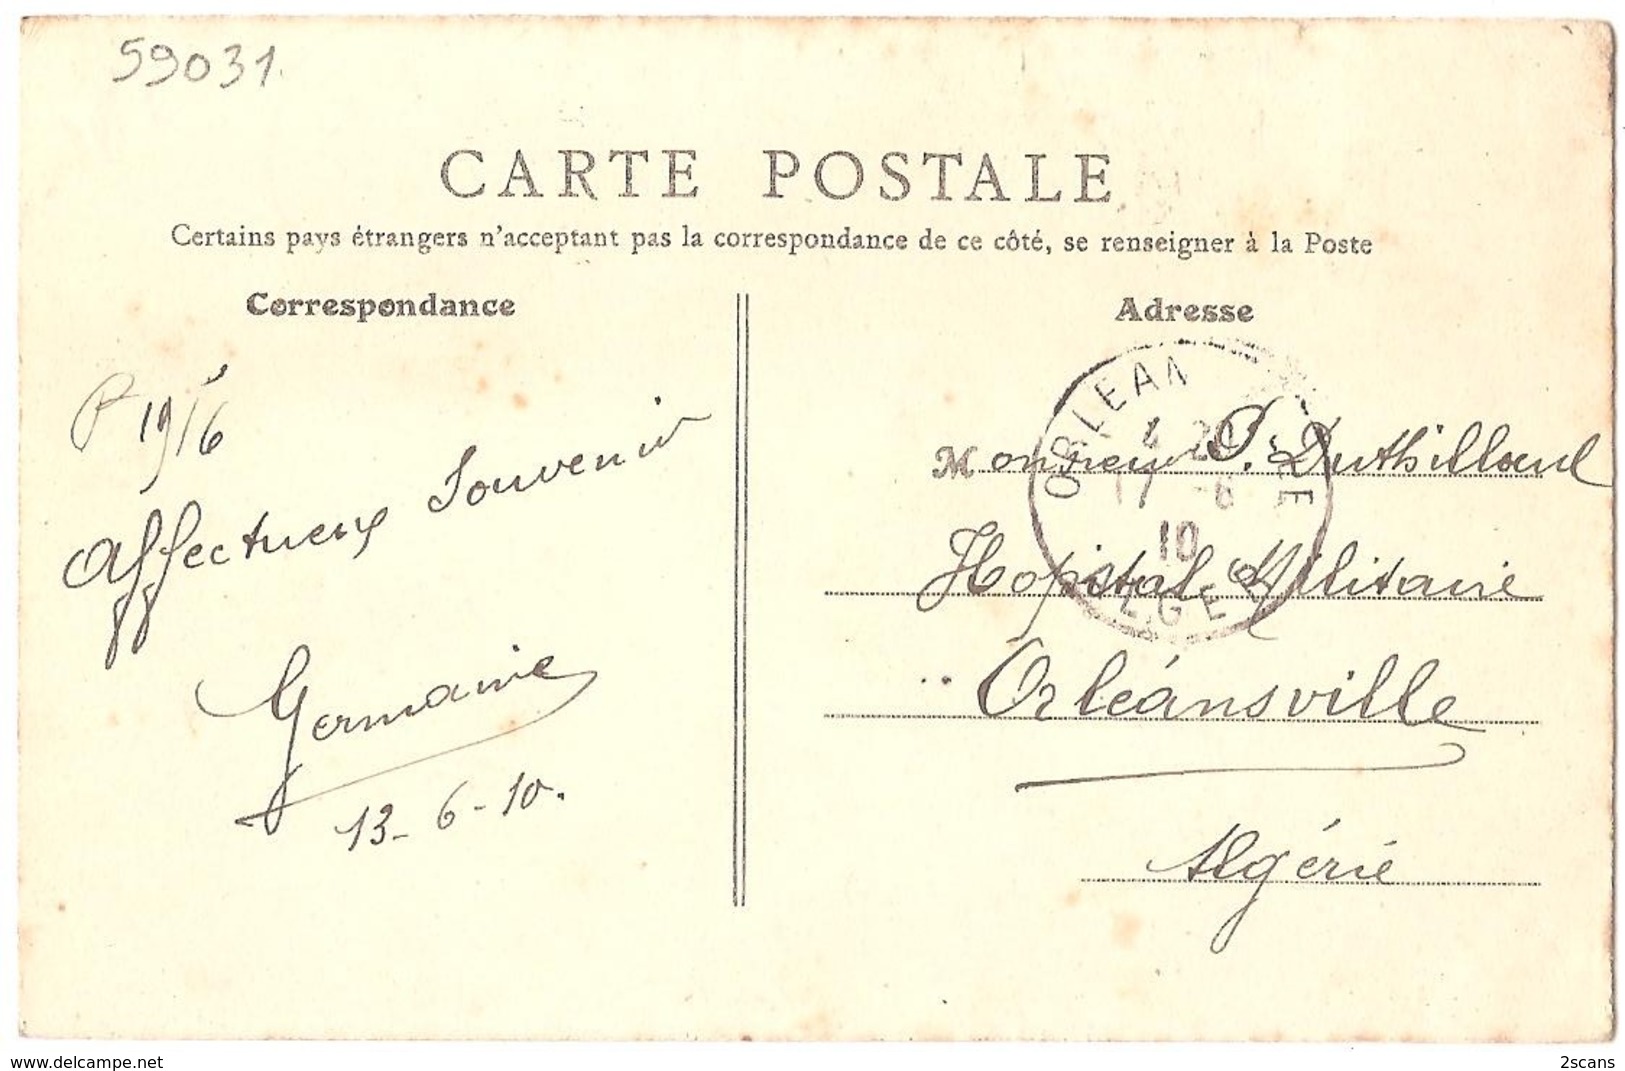 59031
CARTE POSTALE
Certains pays étrangers n'acceptant pas la correspondance de ce côté, se renseigner à la Poste
Correspondance
19/6
Affectueux Souvenir
Germaine
13-6-10.
Adresse
ORLEAN VILLE
4 20
17 -6
10
ALGER
Monsieur P. Duthilloeul
Hopital Militaire
Orléansville
Algérie
www.delcampe.net
2scans